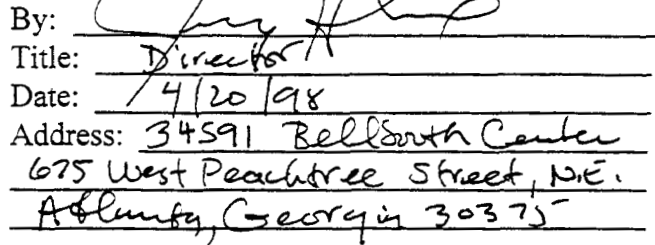 By:
Title: Director
Date: 4/20/98
Address: 34591 BellSouth Center
675 West Peachtree Street, N.E.
Atlanta, Georgia 30375